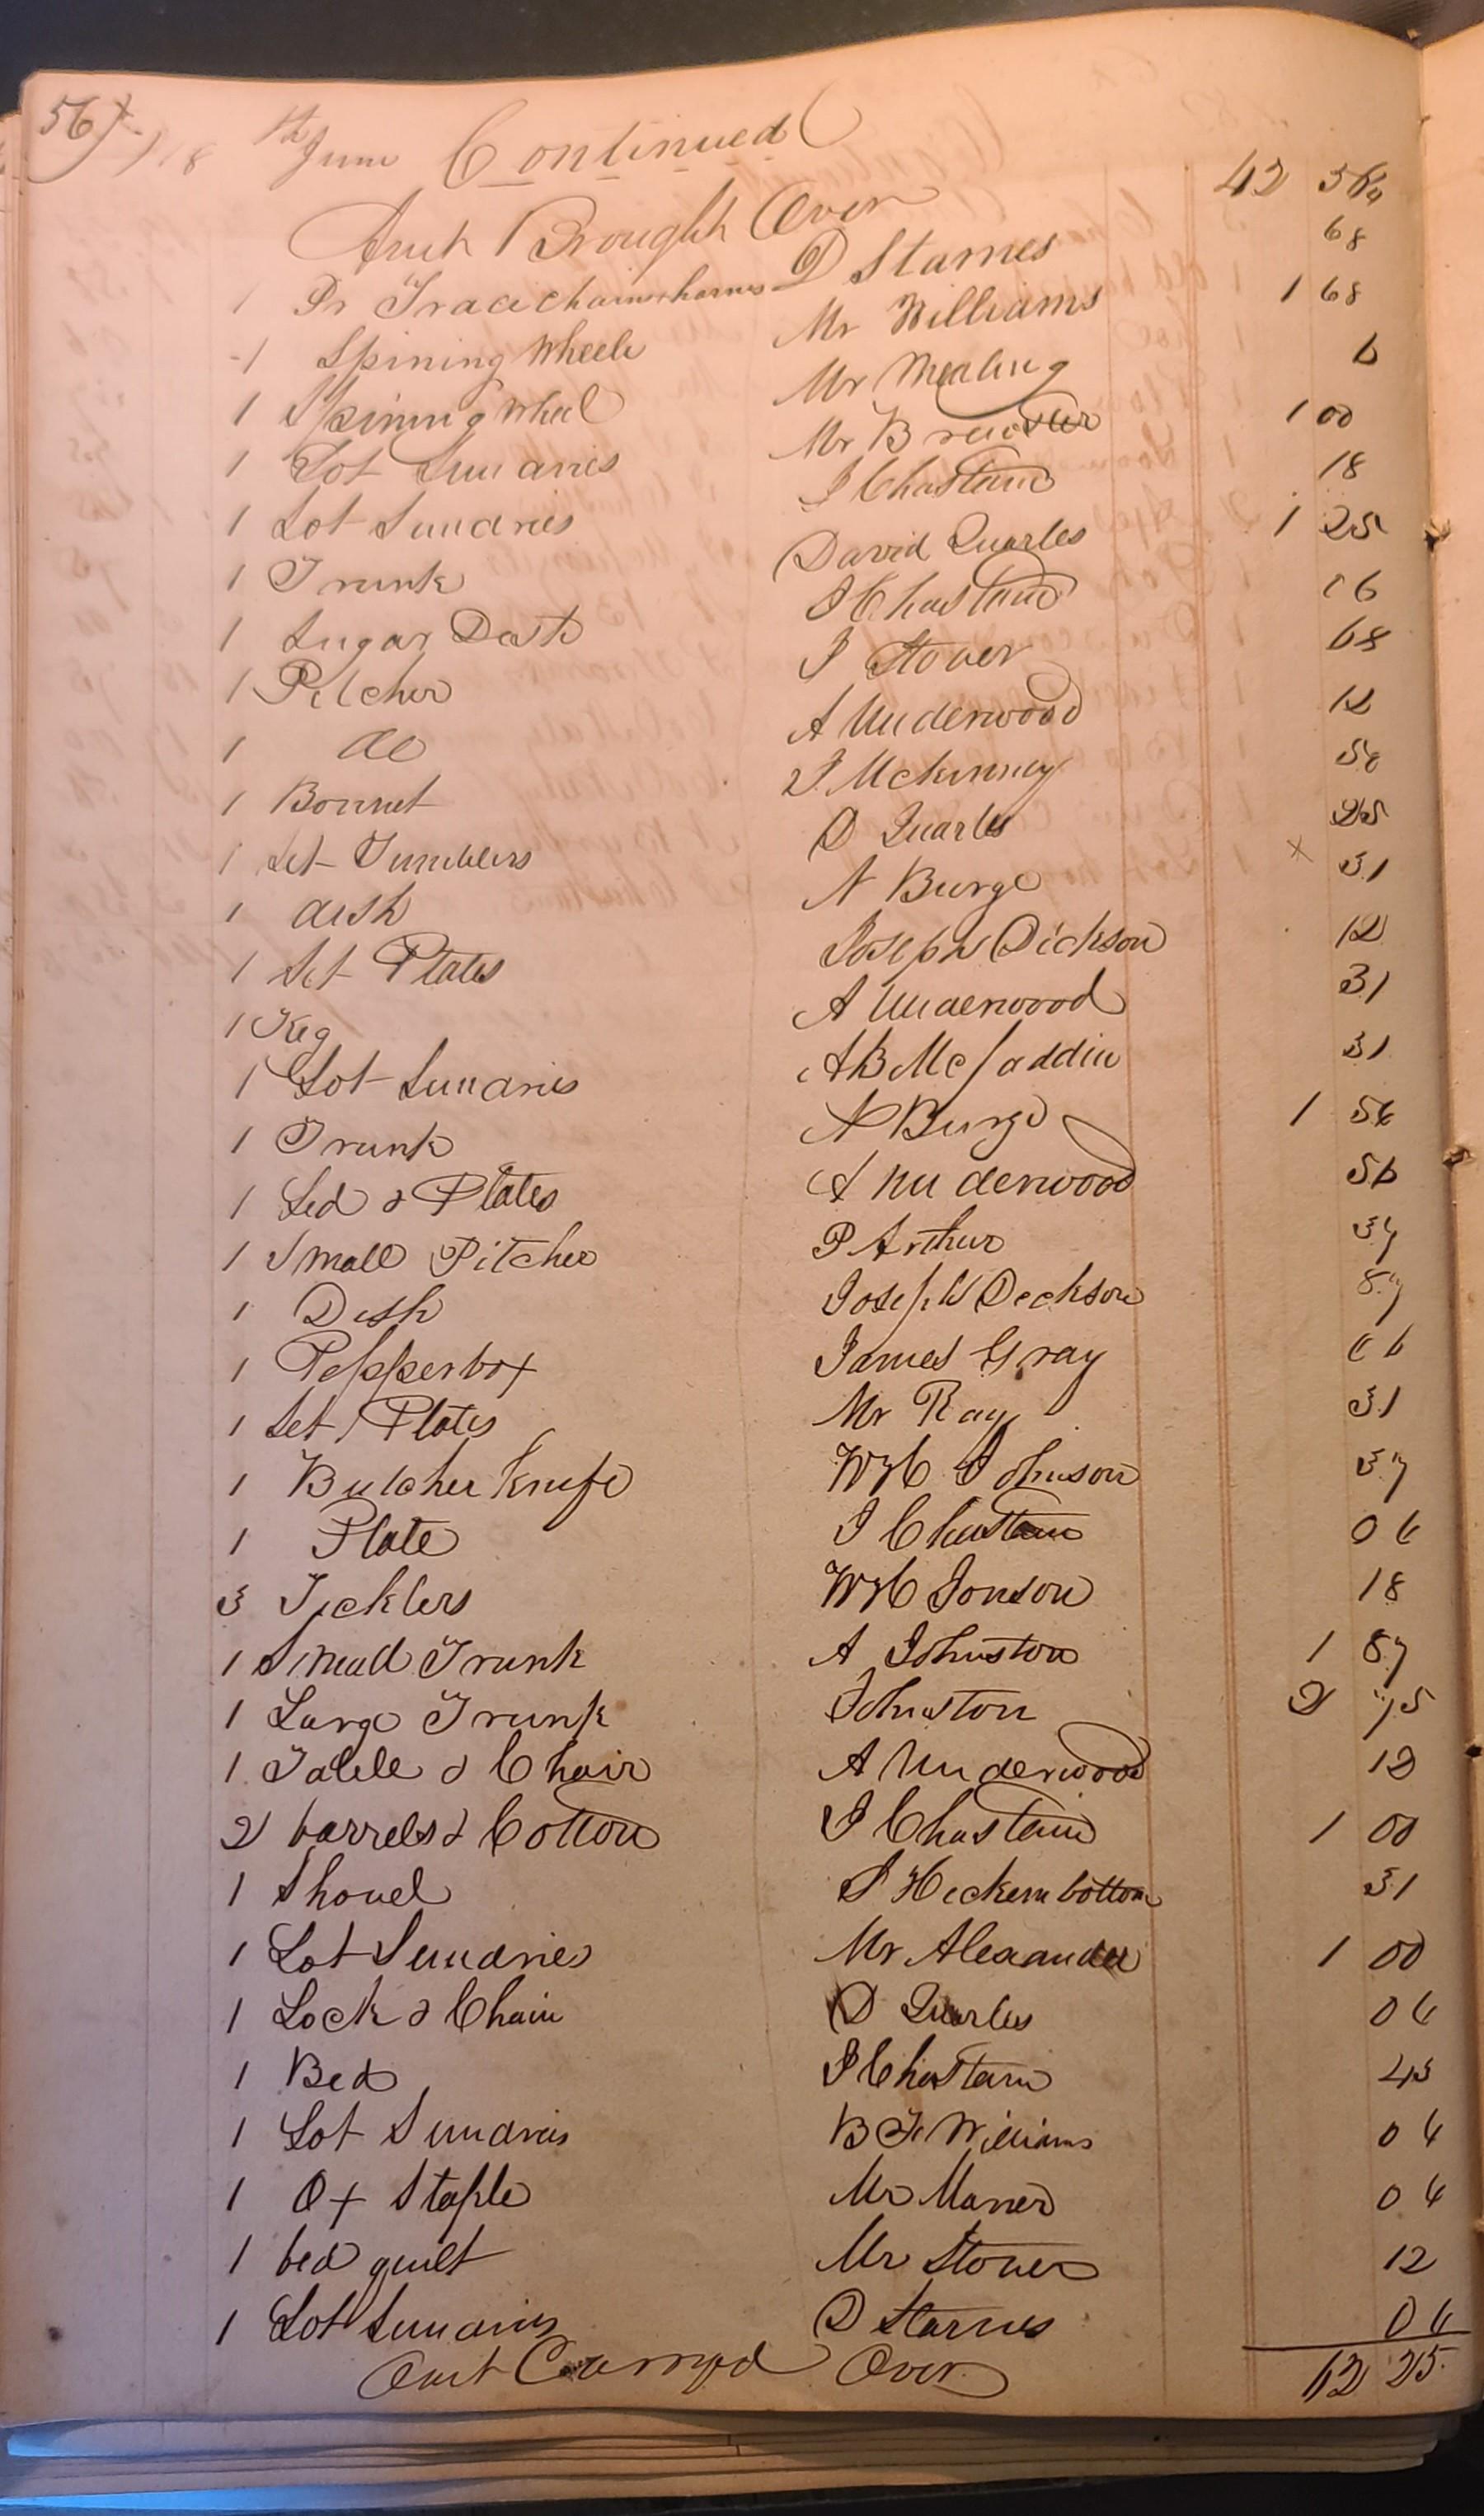 56) 18th June Continued
Amt Brought Over 42 56¼
1 Pr Trace chains & hames D Starnes 68
1 Spining Wheele Mr Williams 1 68
1 Spining Wheel Mr Mealing 6
1 Lot Sundries Mr Brewster 1 00
1 Lot Sundries J Chastain 18
1 Trunk David Quarles 1 25
1 Sugar Dish J Chastain 06
1 Pitcher J Stover 68
1 do A Underwood 12
1 Bonnet J Mckinney 50
1 Set Tumblers D Quarles 25
1 dish N Burge x 31
1 Set Plates Joseph Dickson 12
1 Keg A Underwood 31
1 Lot Sundries A B Mcfaddin 31
1 Trunk N Burge 1 56
1 Led & Plates A Underwood 56
1 Small Pitcher P Arthur 37
1 Dish Joseph Deckson 87
1 Pepperbox James Gray 06
1 Set Plates Mr Ray 31
1 Butcher Knife W H C Johnson 37
1 Plate J Chastain 06
3 Ticklers W H C Jonson 18
1 Small Trunk A Johnston 1 87
1 Large Trunk Johnston 2 75
1 Table & Chair A Underwood 12
2 barrels & Cotton J Chastain 1 00
1 Shovel J Heckembottom 31
1 Lot Sundries Mr Alexander 1 00
1 Lock & Chain D Quarles 06
1 Bed J Chastain 43
1 Lot Sundries B F Williams 06
1 Ox Staple Mr Maner 06
1 bed quilt Mr Stover 12
1 Lot Sundries D Starnes 06
Amt Carryd Over 62 25